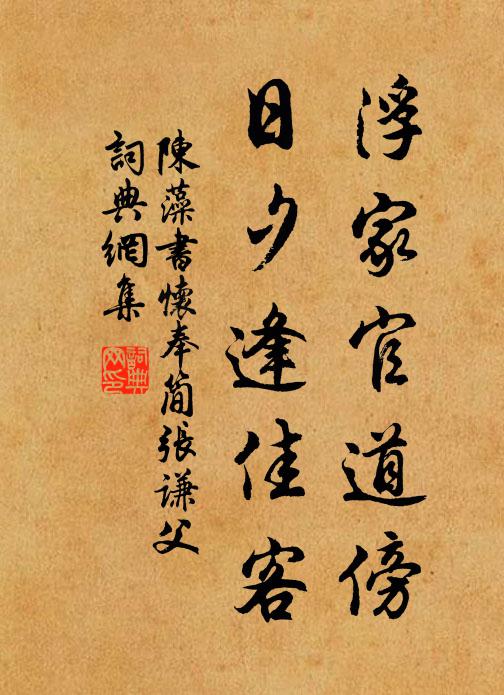 浮家官道傍
日夕逢佳客
陳藻書懷奉簡張謙父
詞典網集
詞典網印